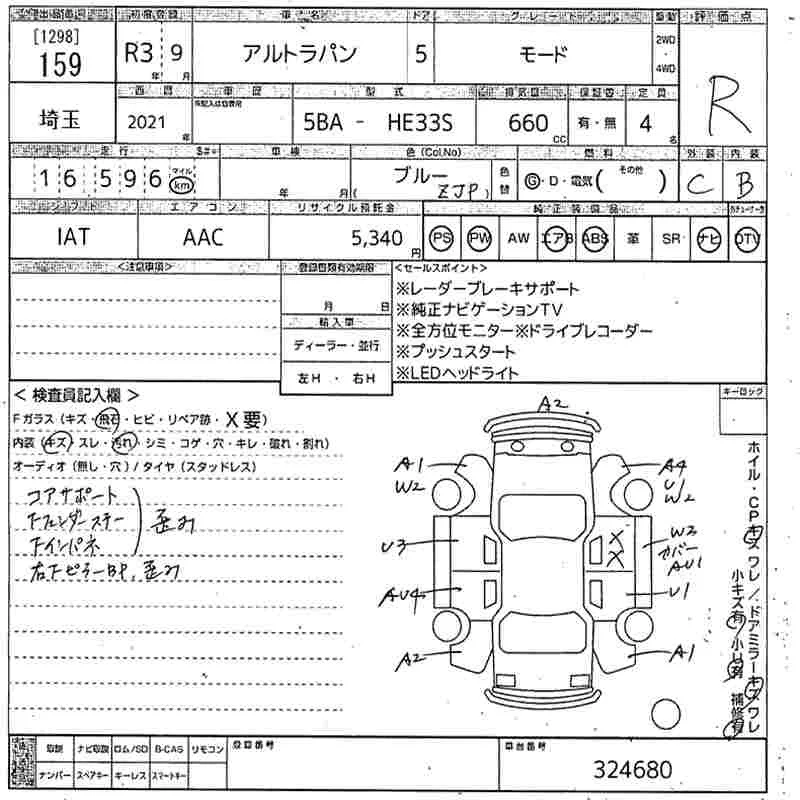 出品店通知 初度登録 車名 ドア グレード 駆動 評価点
[1298]
159 R3 9 アルトラパン 5 モード 2WD・4WD R
年 月
埼玉 西暦 車歴 型式 排気量 保証書 定員
2021 年 5BA - HE33S 660 CC 有・無 4 名
走行 車検 色(Col.No) 燃料 外装 内装
16,596 マイル km 年 月 ブルー (ZJP) 色替 G・D・電気( その他 ) C B
シフト エアコン リサイクル預託金 純正装備品
IAT AAC 5,340 円 PS PW AW エアB ABS 革 SR ナビ DTV
<注意事項> 登録書類有効期限 <セールスポイント>
月 日
※レーダーブレーキサポート
※純正ナビゲーションTV
輸入車
※全方位モニター※ドライブレコーダー
ディーラー・並行
※プッシュスタート
左H ・ 右H
※LEDヘッドライト
<検査員記入欄> キーロック
Fガラス(キズ・飛石・ヒビ・リペア跡・X要)
内装(キズ・スレ・汚れ・シミ・コゲ・穴・キレ・破れ・割れ)
オーディオ(無し・穴)/タイヤ(スタッドレス)
コアサポート
Fフェンダーステー 歪み
Fインパネ
右FピラーBP,歪み
A2
A1
W2
A4
U1
W2
U3
X
X
W3
カバー
AU1
AU4
U1
A2
A1
ホイル・CPキズワレ/ドアミラーキズワレ
小キズ有 小U有 補修有
取説 ナビ取説 ロム/SD B-CAS リモコン 登録番号 車台番号
ナンバー スペアキー キーレス スマートキー 324680